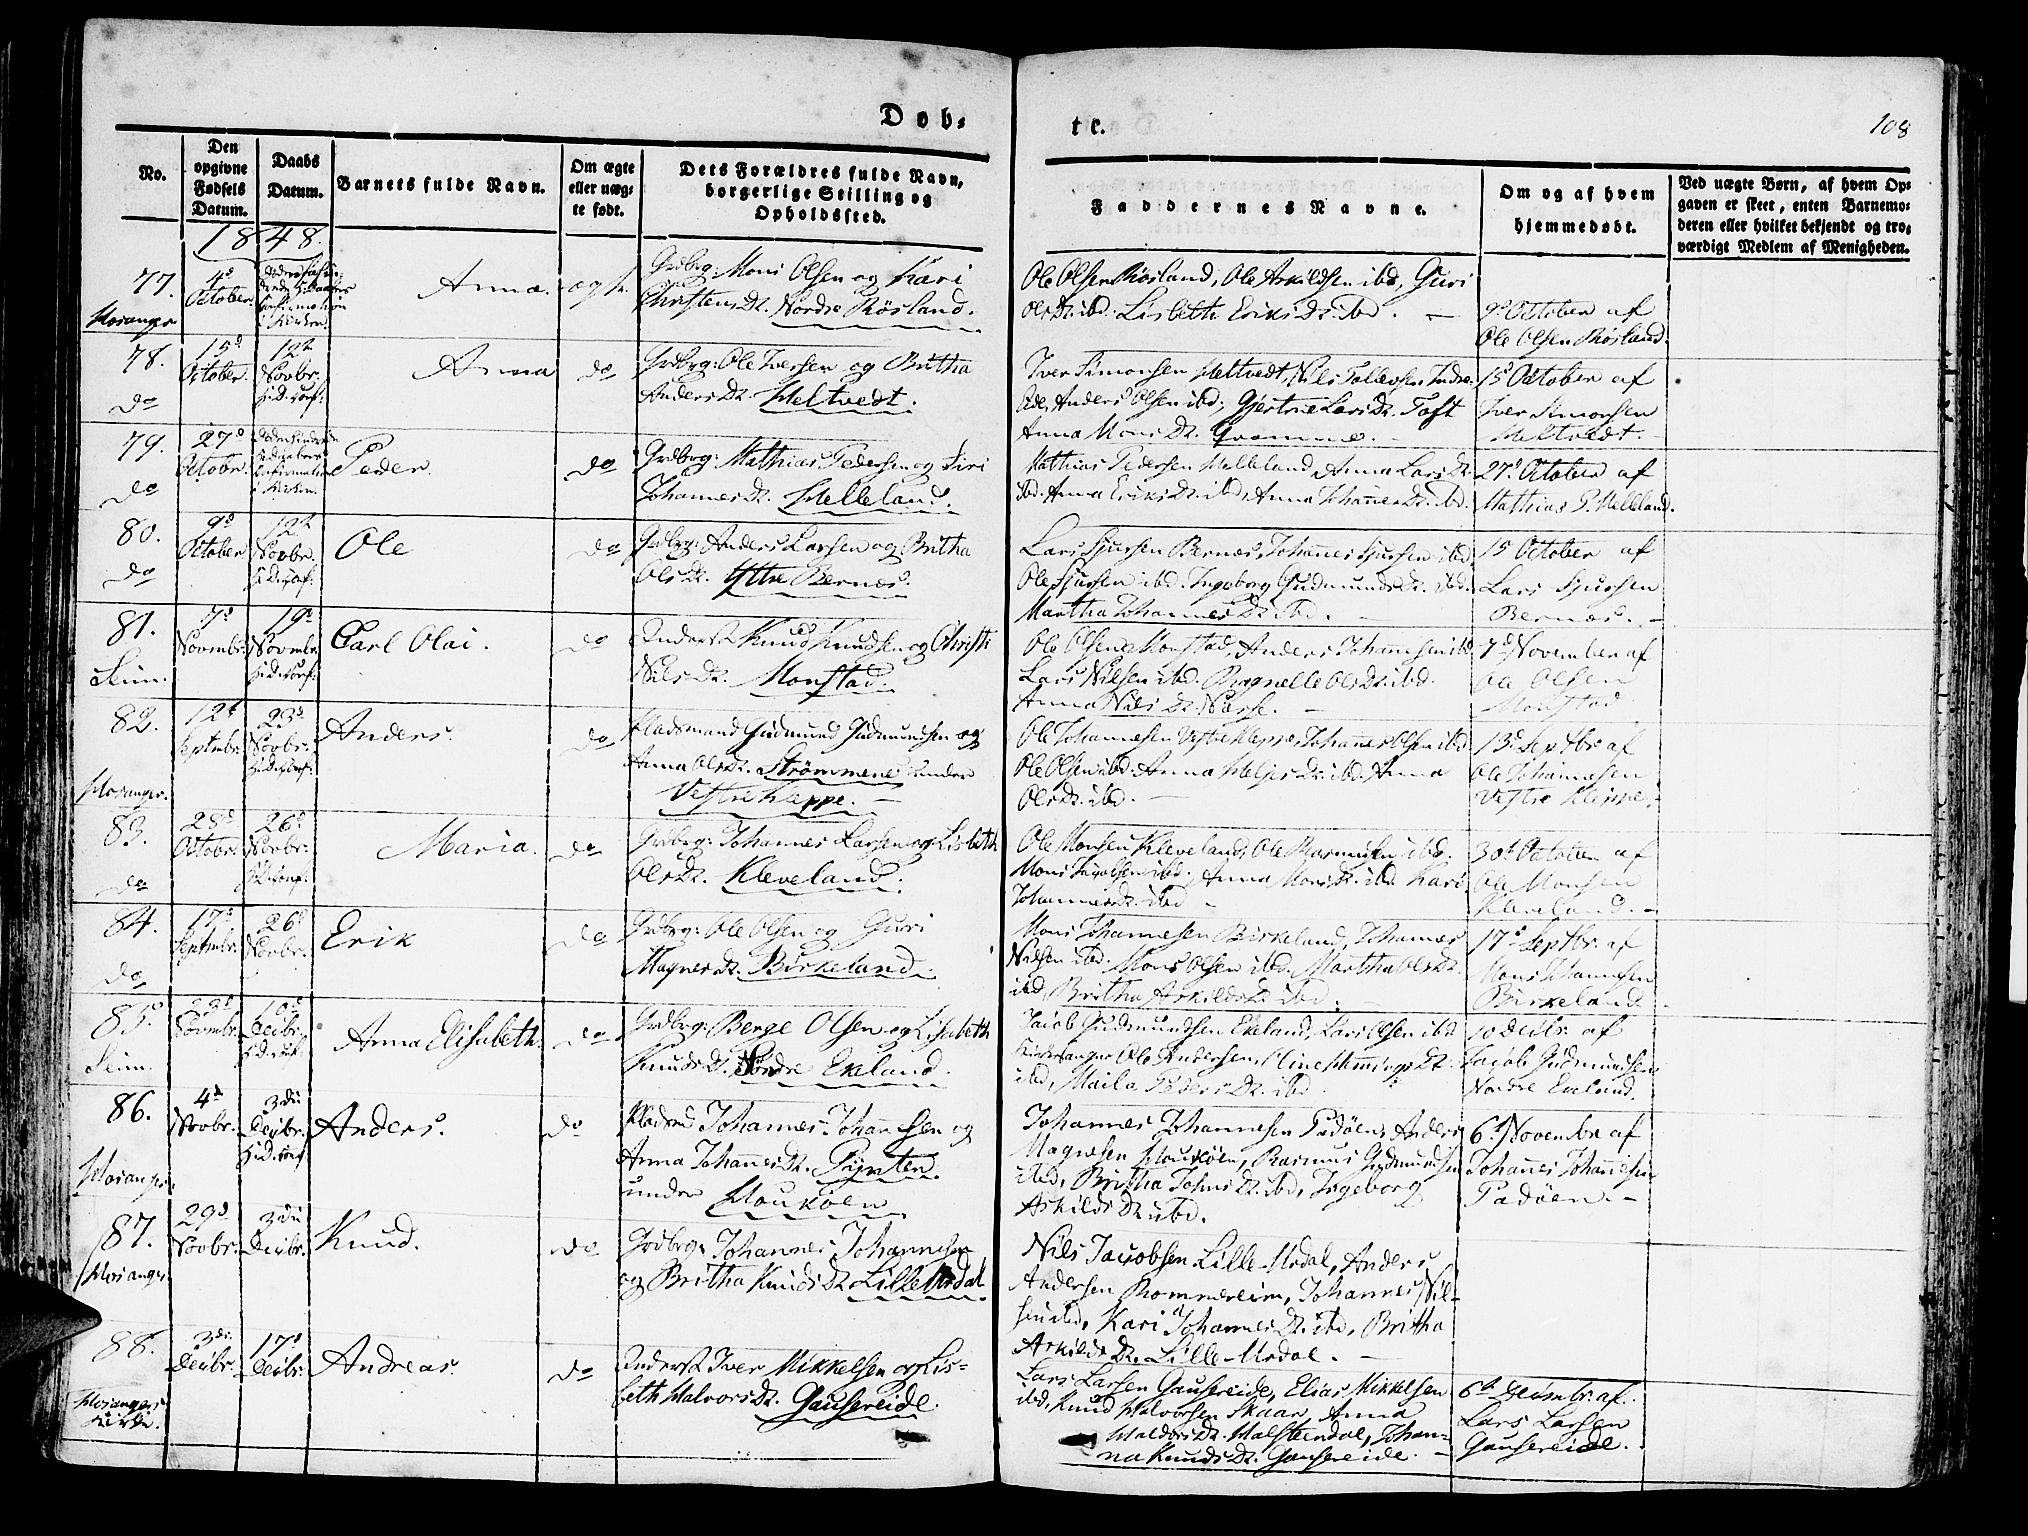 Døb-
te.
108
No.
Den
opgivne
Fødsels
Datum.
Daabs
Datum.
Barnets fulde Navn.
Om ægte
eller uæg-
te født.
Dets Forældres fulde Navn,
borgerlige Stilling og
Opholdssted.
Faddernes Navne.
Om og af hvem
hjemmedøbt.
Ved uægte Børn, af hvem Op-
gaven er skeet, enten Barnemo-
deren eller hvilket bekjendt og tro-
værdigt Medlem af Menigheden.
1848.
77.
Hosanger
4d
October
Confirmation
i Kirken
Anna.
ægte
Grdbrg: Mons Olsen og Kari
Christensdt. Nordre Røsland.
Ole Olsen Røsland, Ole Arkildsen ibd, Guri
Olsdt. ibd. Lisbeth Eriksdt. ibd.
9d October af
Ole Olsen Røsland.
78.
do
15d
October.
12t
Novbr.
Anna
do
Grdbrg: Ole Iversen og Britha
Andersdt. Meltvedt.
Iver Simonsen Meltvedt, Nils Tollevsen Indre-
Anders Olsen ibd, Gjertrue Larsdt. Toft
Anna Monsdt.
15d October af
Iver Simonsen
Meltvedt.
79.
do
27d
Octobr.
Confirmation
i Kirken
Peder.
do
Grdbrg: Mathias Pedersen og Siri
Johannesdt. Helleland.
Mathias Pedersen Helleland, Anna Larsdt.
ibd. Anna Eriksdt. ibd, Anna Johannesdt. ibd.
27d October af
Mathias P. Helleland.
80.
do
9d
October
12t
Novbr.
Ole
do
Grdbrg: Anders Larsen og Britha
Olsdt. Yttre Bernæs.
Lars Sjursen Bernæs, Johannes Sjursen ibd
Ole Sjursen ibd. Ingeborg Gudmundsdt. ibd.
Martha Johannesdt. ibd.
15 October af
Lars Sjursen
Bernæs.
81.
Seim.
7d
Novmbr.
19d
Novmbr
Carl Olai.
do
Inderst Knud Knudsen og Christi
Nilsdt. Monstad.
Ole Olsen Monstad, Anders Johannesen ibd
Lars Nilsen ibd. Ragnelle Olsdt. ibd.
Anna Nilsdt. Næsse.
7d November af
Ole Olsen
Monstad
82.
Hosanger.
12t
Septmbr.
23d
Novbr.
Anders.
do
Pladsmand Gudmund Gudmundsen og
Anna Olsdt. Strømmene under
Vestre Kleppe.
Ole Johannesen Vestre Kleppe, Johannes Olsen ibd
Ole Olsen ibd. Anna Heljesdt. ibd. Anna
Olsdt. ibd.
13d Septbr. af
Ole Johannesen
Vestre Kleppe
83.
do
28d
Octobr.
26d
Novbr.
Maria.
do
Grdbrg: Johannes Larsen og Lisbeth
Olsdt. Kleveland.
Ole Monsen Kleveland, Ole Rasmusen ibd.
Mons ibd. Anna Monsdt. ibd. Kari
Johannesdt. ibd
30t October af
Ole Monsen
Kleveland.
84.
do
17d
Septmbr.
26d
Novbr.
Erik
do
Grdbrg: Ole Olsen og Guri
Magnesdt. Birkeland.
Mons Johannesen Birkeland, Johannes
Nilsen ibd. Mons Olsen ibd. Martha Olsdt.
ibd, Britha Arkildsdt. ibd.
17d Septbr. af
Mons Johannesen
Birkeland
85.
Seim.
23d
Novmbr.
10d
Decbr.
Anna Elisabeth.
do
Grdbrg: Berge Olsen og Lisabeth
Knudsdt. Nordre Ekeland.
Jacob Gudmundsen Ekeland, Lars Olsen ibd
Kirkesanger Ole Andersen, Oline Hemingsdt
ibd, Maila Pedersdt. ibd
10 Decbr. af
Jacob Gudmundsen
Nordre Ekeland.
86.
Hosanger.
4d
Novbr.
3die
Decbr.
Anders.
do
Pladsmd Johannes Johannesen og
Anna Johannesdt. Pynten
under Houkøen
Johannes Johannesen Padøen, Anders
Magnesen Houkøen, Rasmus Gudmundsen
ibd, Britha Johnsdt. ibd, Ingeborg
Arkildsdt. ibd.
6t Novembr. af
Johannes Johannesen
Padøen.
87.
Hosanger
29d
Novbr.
3die
Decbr.
Knud.
do
Grdbrg: Johannes Johannesen
og Britha Knudsdt. Lille Urdal
Nils Jacobsen Lille-Urdal, Anders
Andersen Rommereim, Johannes Nil-
sen ibd, Kari Johannesdt. ibd, Britha
Arkildsdt. Lille-Urdal.
88.
Hosangers
Kirke.
3die
Decbr.
17d
Decbr.
Andreas.
do
Inderst Iver Mikkelsen og Lis-
beth Halvorsdt. Gausereide
Lars Larsen Gausereide, Elias Mikkelsen
ibd, Knud Halvorsen Skaar, Anna
Halvorsdt. Halsteendal, Johan-
na Knudsdt. Gausereide.
6t Decembr. af
Lars Larsen
Gausereide.